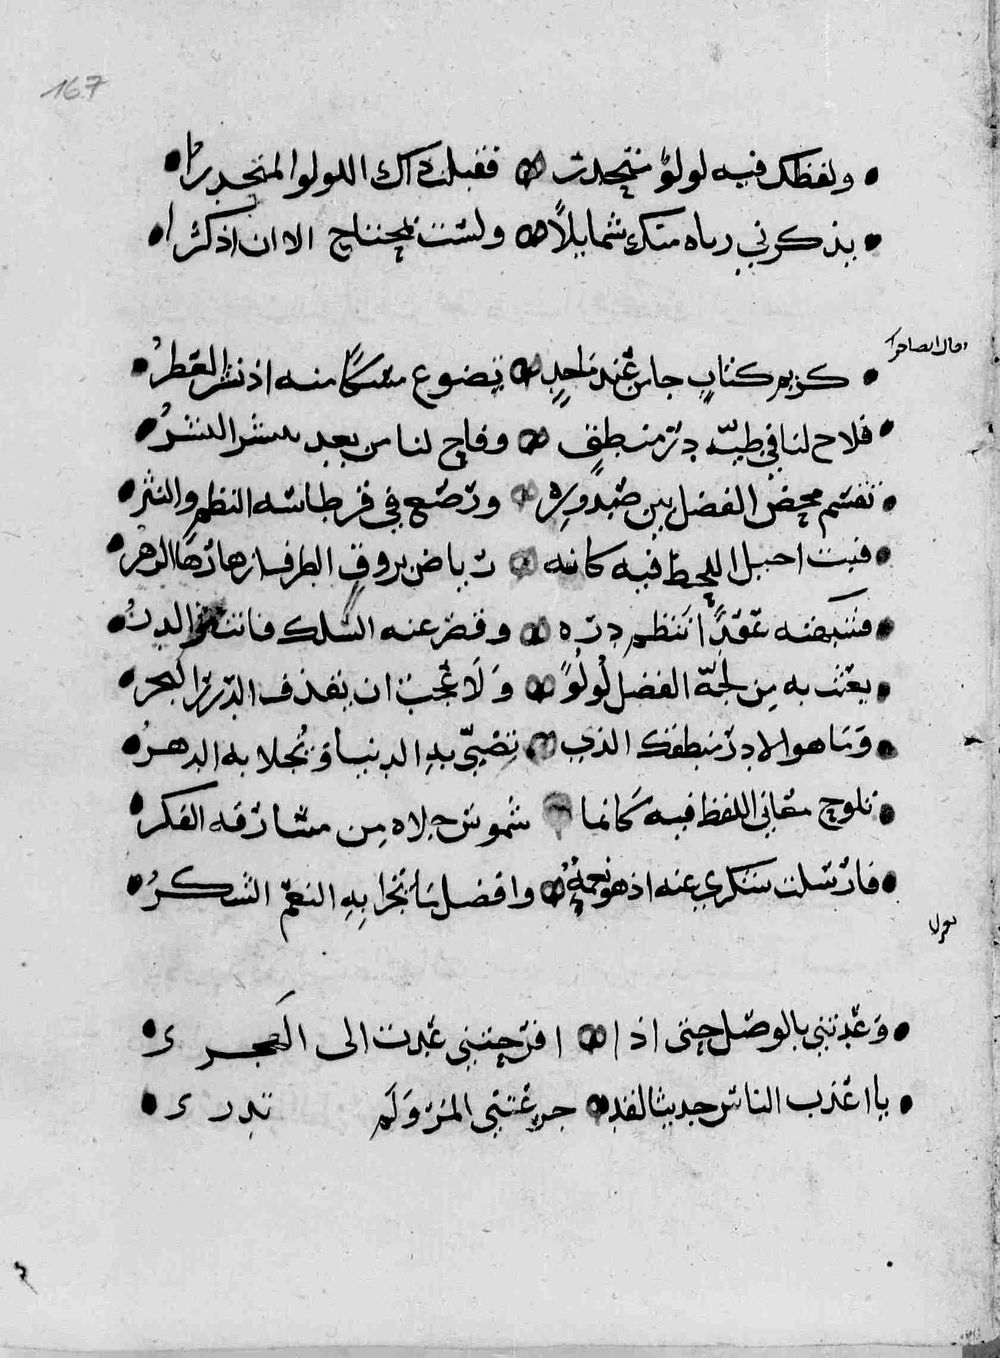 167
ولفظك فيه لولو متحدر فقبلت ذاك اللولو المتحدرا
يذكرني رياه منك شمايلاً ولست بمحتاج الا ان اذكرا
وقال ايضا
كريم كتاب جا من عند ماجدٍ يضوع مسكًا منه اذ نشر العطرُ
فلاح لنا في طيّه درّ منطقٍ وفاح لنا من بعد نشر النشرُ
تقسّم محض الفضل بين صدوره ورصّع في قرطاسه النظم والنثر
فبت احيل اللحظ فيه كانه رياض يروق الطرف ازهارها الزهر
فشبهته عقدًا تنظم درّه وفض عنه السلك فانتثر الدرُ
بعثت به من لجّة الفضل لولواً ولا عجب ان يقذف الدرر البحر
وما هو الا درّ منطقك الذي تضيّ به الدنيا ويُجلا به الدهرُ
تلوح معاني اللفظ فيه كانما شموس جلاه من مشارقه الفكر
فارسلت شكري عنه اذ هو نعمةٌ وافضل ما تجزا به النعم الشكرُ
وعدتني بالوصل حتى اذا افرحتني عدت الى الهجر ى
يا اعذب الناس حديثا لقد جرعتني المرّ ولم تدر ى